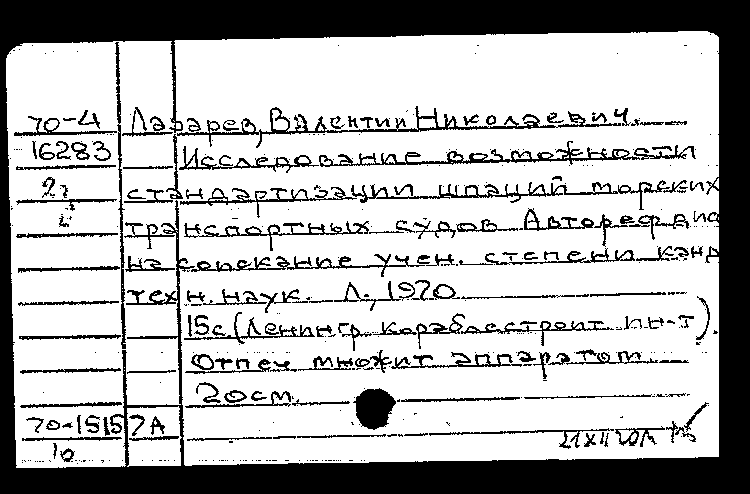 70-4 Лазарев, Валентин Николаевич.
16283 Исследование возможности
2г стандартизации шпаций морских
транспортных судов Автореф дис
на соискание учен. степени канд
техн. наук. Л., 1970
15с (Ленингр кораблестроит ин-т).
Отпеч множит аппаратом
20см.
70-15157А
10